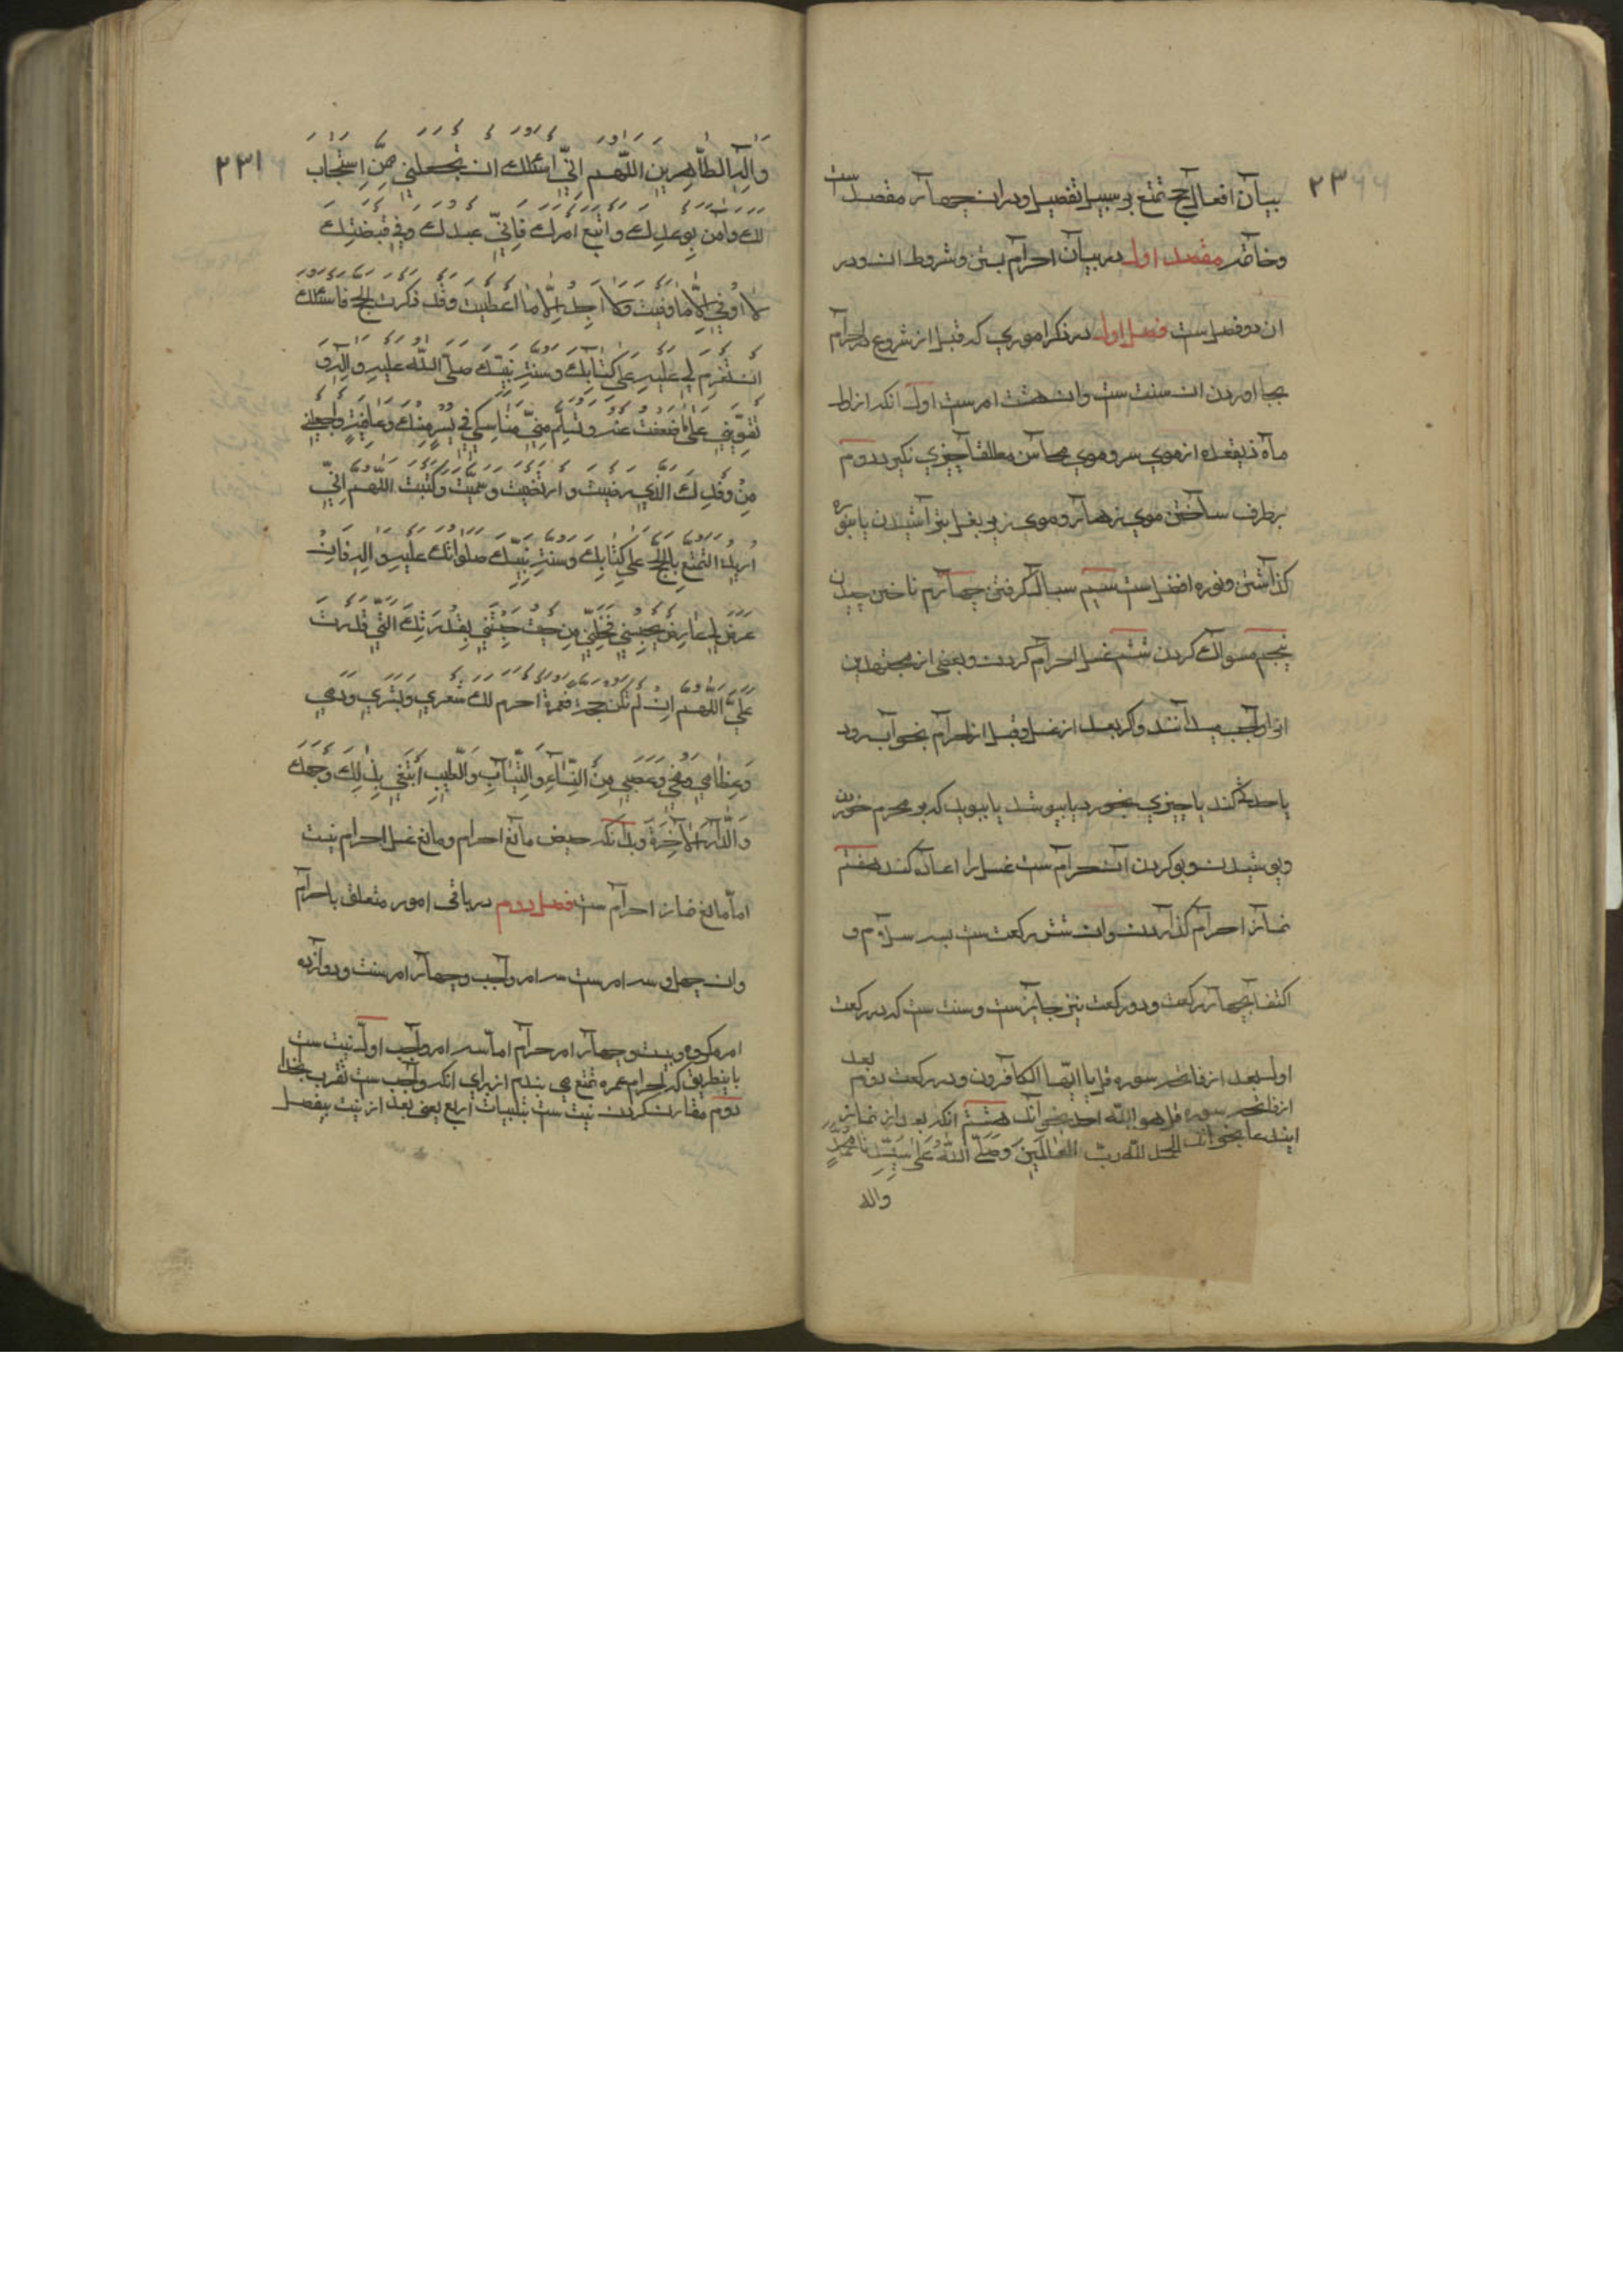 بیان افعال حج تمتع بر سبیل تفصیل و در ان چهار مقصد است
وخاتمه مقصد اول در بیان احرام بستن وشروط ان و در
ان دو فصل ست فصل اول در ذکر اموری که قبل از شروع در احرام
بجا اوردن ان سنت ست وان هشت امرست اول انکه از اول
ماه ذیقعده از موی سر و موی محاسن مطلقا چیزی نکیرد دوم
بر طرف ساختن موی زهار و موی زیر بغل بتراشیدن یا بنوره
کذاشتن ونوره افضل ست سیم سبال کرفتن چهارم ناخن چیدن
پنجم مسواک کردن ششم غسل احرام کردن وبعضی از مجتهدین
انرا واجب میدانند واکر بعد از غسل وقبل از احرام بخواب رود
یا حدثی کند یا چیزی بخورد یا بپوشد یا ببوید که بر محرم خوردن
وپوشیدن وبو کردن ان حرام ست غسل را اعاده کند هفتم
نماز احرام کذاردن وان شش رکعت ست بسه سلام و
اکتفا بچهار رکعت ودو رکعت نیز جایزست وسنت ست که در رکعت
اول بعد از فاتحه سوره قل یا ایها الکافرون ودر رکعت دوم بعد
از فاتحه سوره قل هو الله احد بخواند هشتم انکه بعد از نماز
ایندعا بخواند الحمد لله رب العالمین وصلی الله علی سیدنا محمد
واله
۲۳۱
واله الطاهرین اللهم انی اسئلک ان تجعلنی ممن استجاب
لک وامن بوعدک واتبع امرک فانی عبدک وفی قبضتک
لا اوقی الا ما وقیت ولا اجد الا ما اعطیت وقد ذکرت الحج فاسئلک
ان تعزم لی علیه علی کتابک وسنة نبیک صلی الله علیه واله و
تقوینی علی ما ضعفت عنه وتسلم منی مناسکی فی یسر منک وعافیة واجعلنی
من وفدک الذی رضیت وارتضیت وسمیت وکتبت اللهم انی
ارید التمتع بالحج علی کتابک وسنة نبیک صلواتک علیه واله فان
عرض لی عارض یحبسنی فخلنی من حیث حبستنی بقدرتک التی قدرت
علی اللهم ان لم تکن حجة فعمرة احرم لک شعری وبشری ودمی
وعظامی ومخی وعصبی من النساء والثیاب والطیب ابتغی بذلک وجهک
والدار الاخرة وبدانکه حیض مانع احرام ومانع غسل احرام نیست
اما مانع نماز احرام ست فصل دوم در باقی امور متعلق باحرام
وان چهل و سه امرست سه امر واجب وچهار امر سنت ودوازده
امر مکروه وبیست وچهار امر حرام اما سه امر واجب اول نیت ست
باینطریق که احرام عمره تمتع می بندم از برای انکه واجب ست تقرب بخدا
دوم مقارن کردن نیت ست بتلبیات اربع یعنی بعد از نیت بیفصل